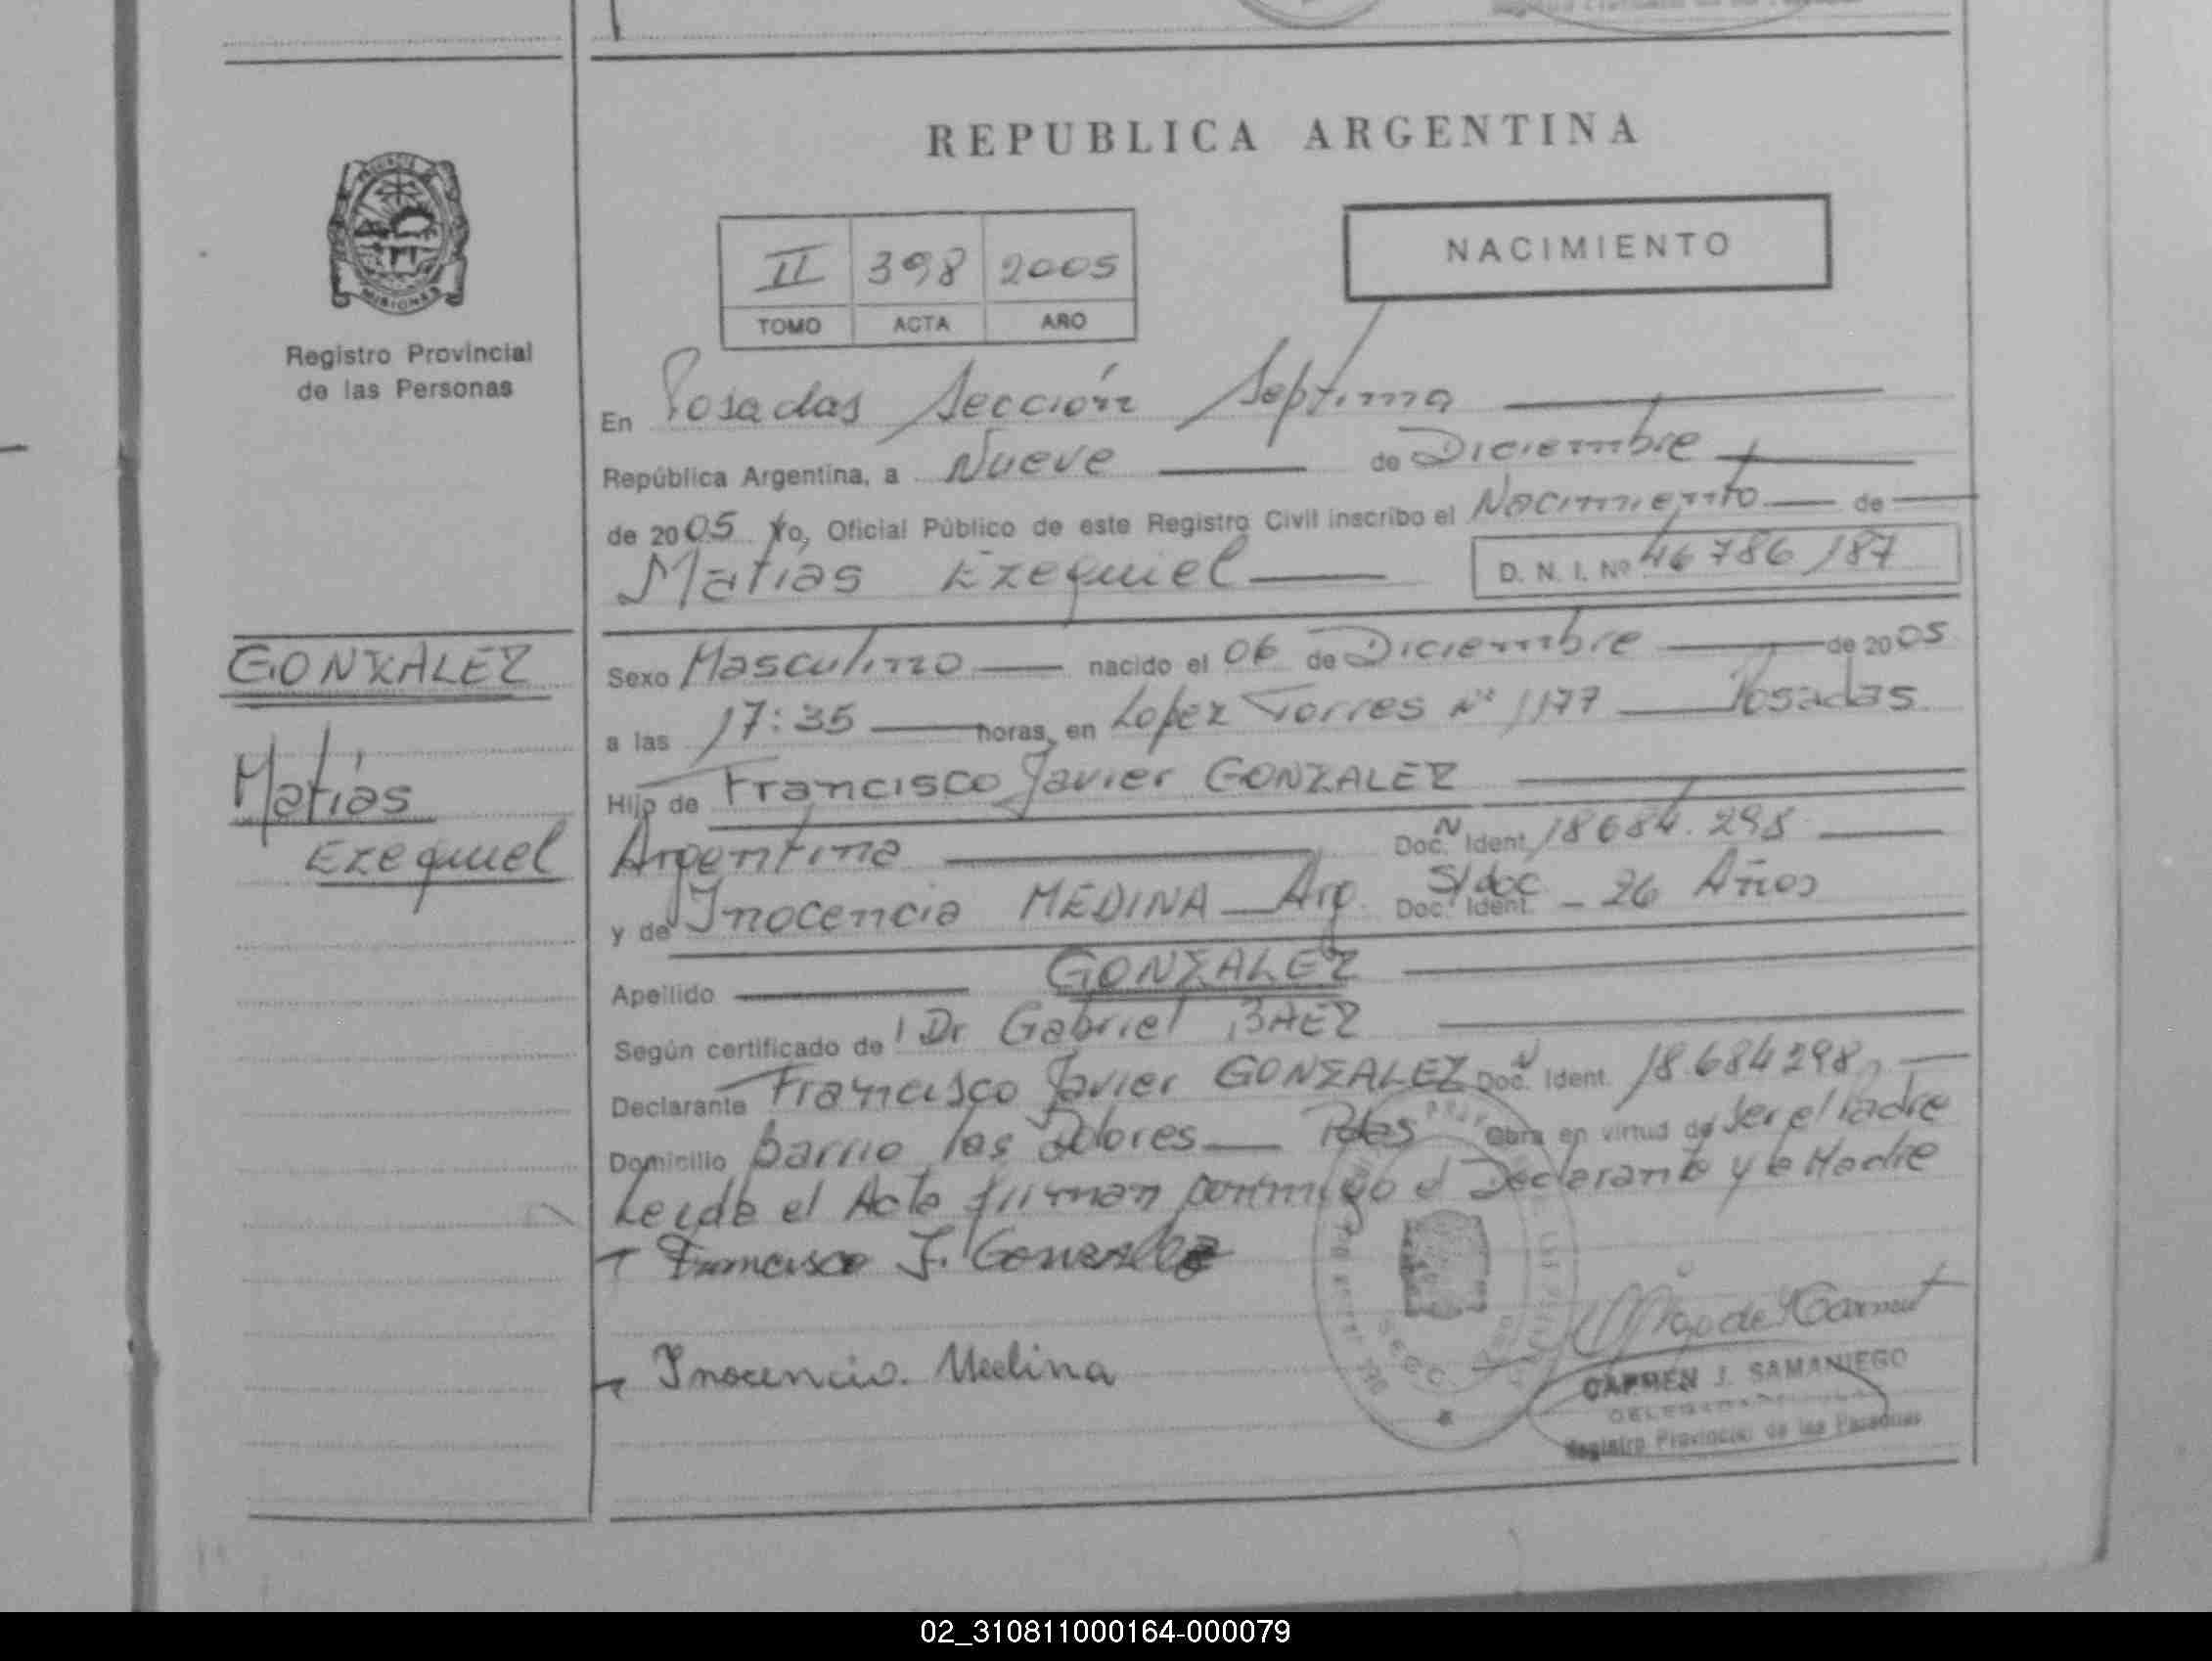 REPUBLICA ARGENTINA
NACIMIENTO
II 398 2005
TOMO ACTA AÑO
MISIONES
Registro Provincial
de las Personas
En Posadas Sección Septima
República Argentina, a Nueve de Diciembre
de 2005 Yo, Oficial Público de este Registro Civil inscribo el Nacimiento de
Matias Ezequiel D. N. I. Nº 46 786 187
GONZALEZ
Matías
Ezequiel
Sexo Masculino nacido el 06 de Diciembre de 2005
a las 17:35 horas, en Lopez Torres Nº 1177 Posadas
Hijo de Francisco Javier GONZALEZ
Argentina Doc. N Ident. 18684.298
y de Inocencia MEDINA Arg. Doc. Ident. S/doc - 26 Años
Apellido GONZALEZ
Según certificado de Dr Gabriel BAEZ
Declarante Francisco Javier GONZALEZ Doc. N Ident. 18.684298
Domicilio Barrio las Dolores Pdas Obra en virtud de ser el Padre
Leida el Acta firman conmigo el Declarante y la Madre
Francisco J. Gonzalez
Inocencia Medina
CARMEN J. SAMANIEGO
DELEGADA
Registro Provincial de las Personas
02_310811000164-000079